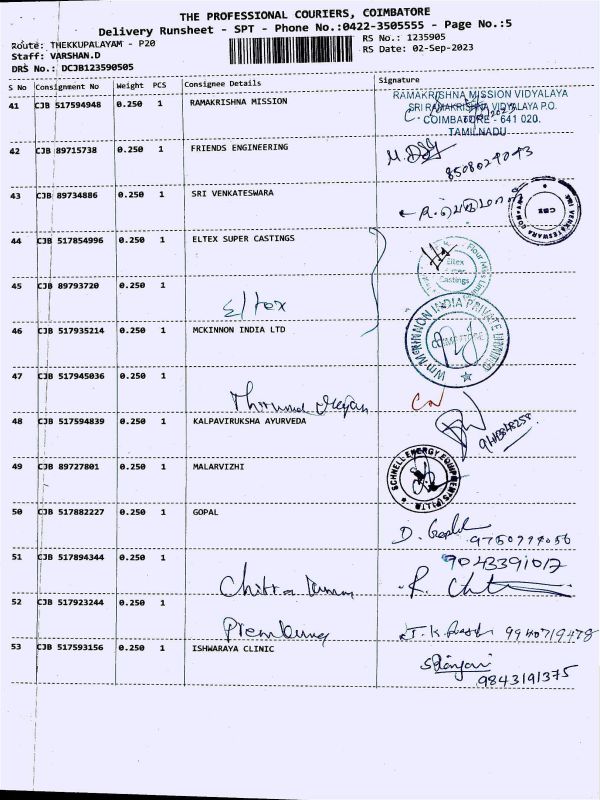 THE PROFESSIONAL COURIERS, COIMBATORE
Delivery Runsheet - SPT - Phone No.:0422-3505555 - Page No.:5
Route: THEKKUPALAYAM - P20
RS No.: 1235905
Staff: VARSHAN.D
RS Date: 02-Sep-2023
DRS No.: DCJB123590505
S No Consignment No Weight PCS Consignee Details Signature
41 CJB 517594948 0.250 1 RAMAKRISHNA MISSION
RAMAKRISHNA MISSION VIDYALAYA
SRI RAMAKRISHNA VIDYALAYA P.O.
COIMBATORE - 641 020.
TAMILNADU
42 CJB 89715738 0.250 1 FRIENDS ENGINEERING
8508029043
43 CJB 89734886 0.250 1 SRI VENKATESWARA
CBE
44 CJB 517854996 0.250 1 ELTEX SUPER CASTINGS
Eltex
Castings
45 CJB 89793720 0.250 1
Eltex
46 CJB 517935214 0.250 1 MCKINNON INDIA LTD
Wm McKINNON INDIA PRIVATE LIMITED
COIMBATORE
47 CJB 517945036 0.250 1
48 CJB 517594839 0.250 1 KALPAVIRUKSHA AYURVEDA
49 CJB 89727801 0.250 1 MALARVIZHI
SCHNELL ENERGY EQUIPMENTS (P) LTD
50 CJB 517882227 0.250 1 GOPAL
D. Gopal
51 CJB 517894344 0.250 1
9043391017
Chitra
52 CJB 517923244 0.250 1
9940719478
53 CJB 517593156 0.250 1 ISHWARAYA CLINIC
9843191375